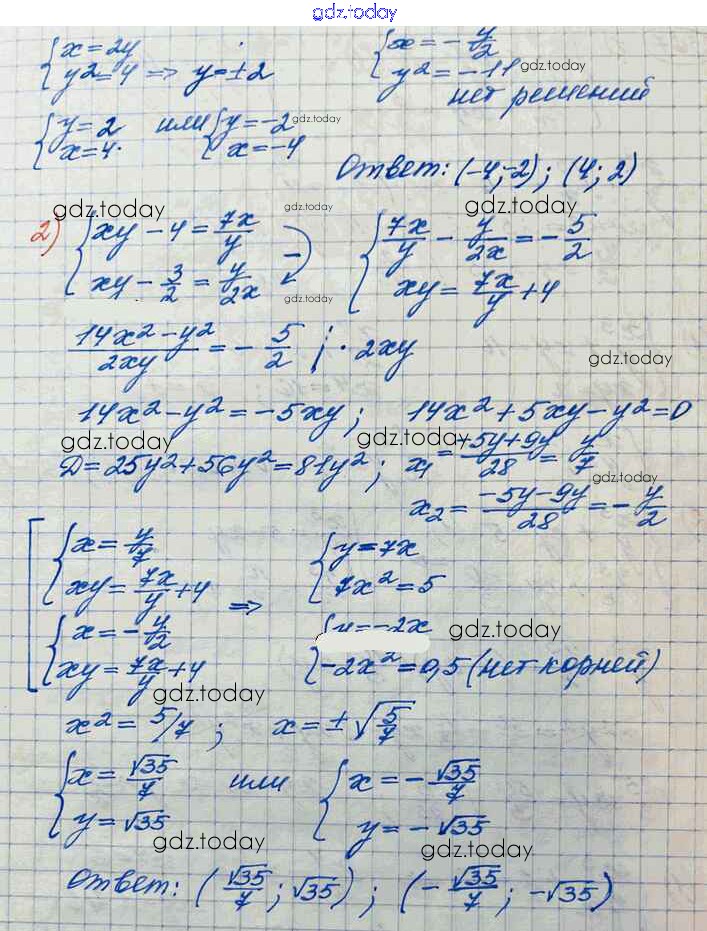 gdz.today
{ x = 2y
y² = 4 => y = ±2
{ x = - y/2
y² = -11 gdz.today
нет решений
{ y = 2
x = 4. или { y = -2 gdz.today
x = -4
Ответ: (-4; -2); (4; 2)
gdz.today gdz.today gdz.today
2) { xy - 4 = 7x/y
xy - 3/2 = y/2x
−
gdz.today
{ 7x/y - y/2x = - 5/2
xy = 7x/y + 4
(14x² - y²)/2xy = - 5/2 | · 2xy
gdz.today
14x² - y² = -5xy; 14x² + 5xy - y² = 0
gdz.today gdz.today
D = 25y² + 56y² = 81y²; x₁ = (-5y + 9y)/28 = y/7
gdz.today
x₂ = (-5y - 9y)/28 = - y/2
[ { x = y/7
xy = 7x/y + 4
{ x = - y/2
xy = 7x/y + 4
=>
{ y = 7x
7x² = 5
{ y = -2x gdz.today
-2x² = 0,5 (нет корней)
gdz.today
x² = 5/7; x = ± √(5/7)
{ x = √35/7
y = √35
или { x = - √35/7
y = - √35
gdz.today gdz.today
Ответ: (√35/7; √35); (- √35/7; -√35)